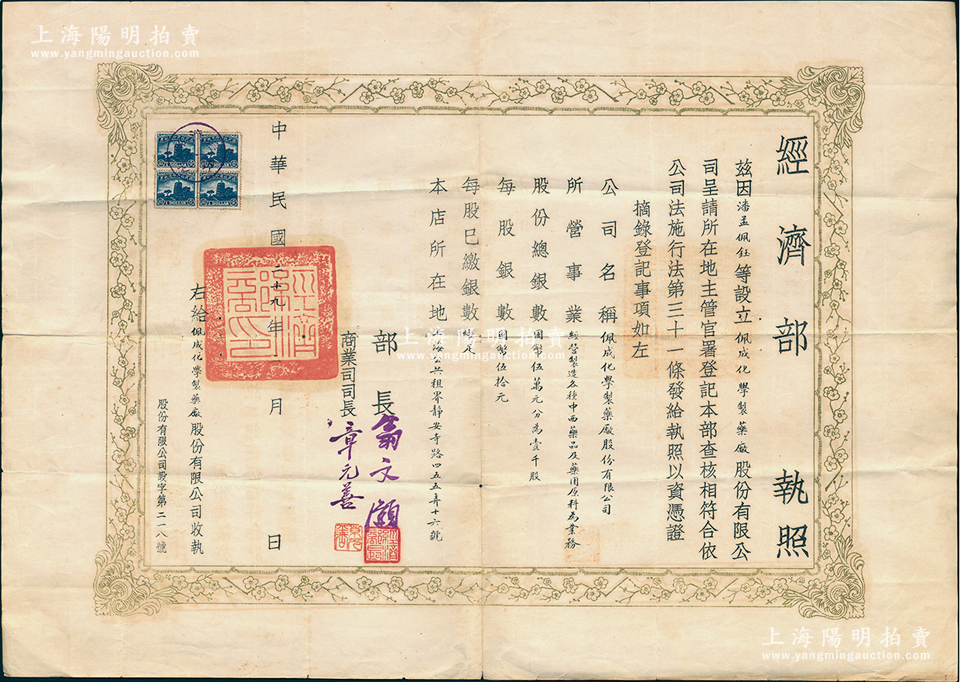 上海陽明拍賣
www.yangmingauction.com
經濟部執照
茲因潘孟佩鈺等設立佩成化學製藥廠股份有限公
司呈請所在地主管官署登記本部查核相符合依
公司法施行法第三十一條發給執照以資憑證
摘錄登記事項如左
公司名稱佩成化學製藥廠股份有限公司
所營事業經營製造各種中西藥品及藥用原料為業務
股份總銀數國幣伍萬元分為壹千股
每股銀數國幣伍拾元
每股已繳銀數
本店所在地上海公共租界靜安寺路四五五弄十六號
部長翁文灝
商業司司長章元善
中華民國二十九年 月 日
經濟部印
右給佩成化學製藥廠股份有限公司收執
股份有限公司設字第二一八號
上海陽明拍賣
www.yangmingauction.com
上海陽明拍賣
www.yangmingauction.com